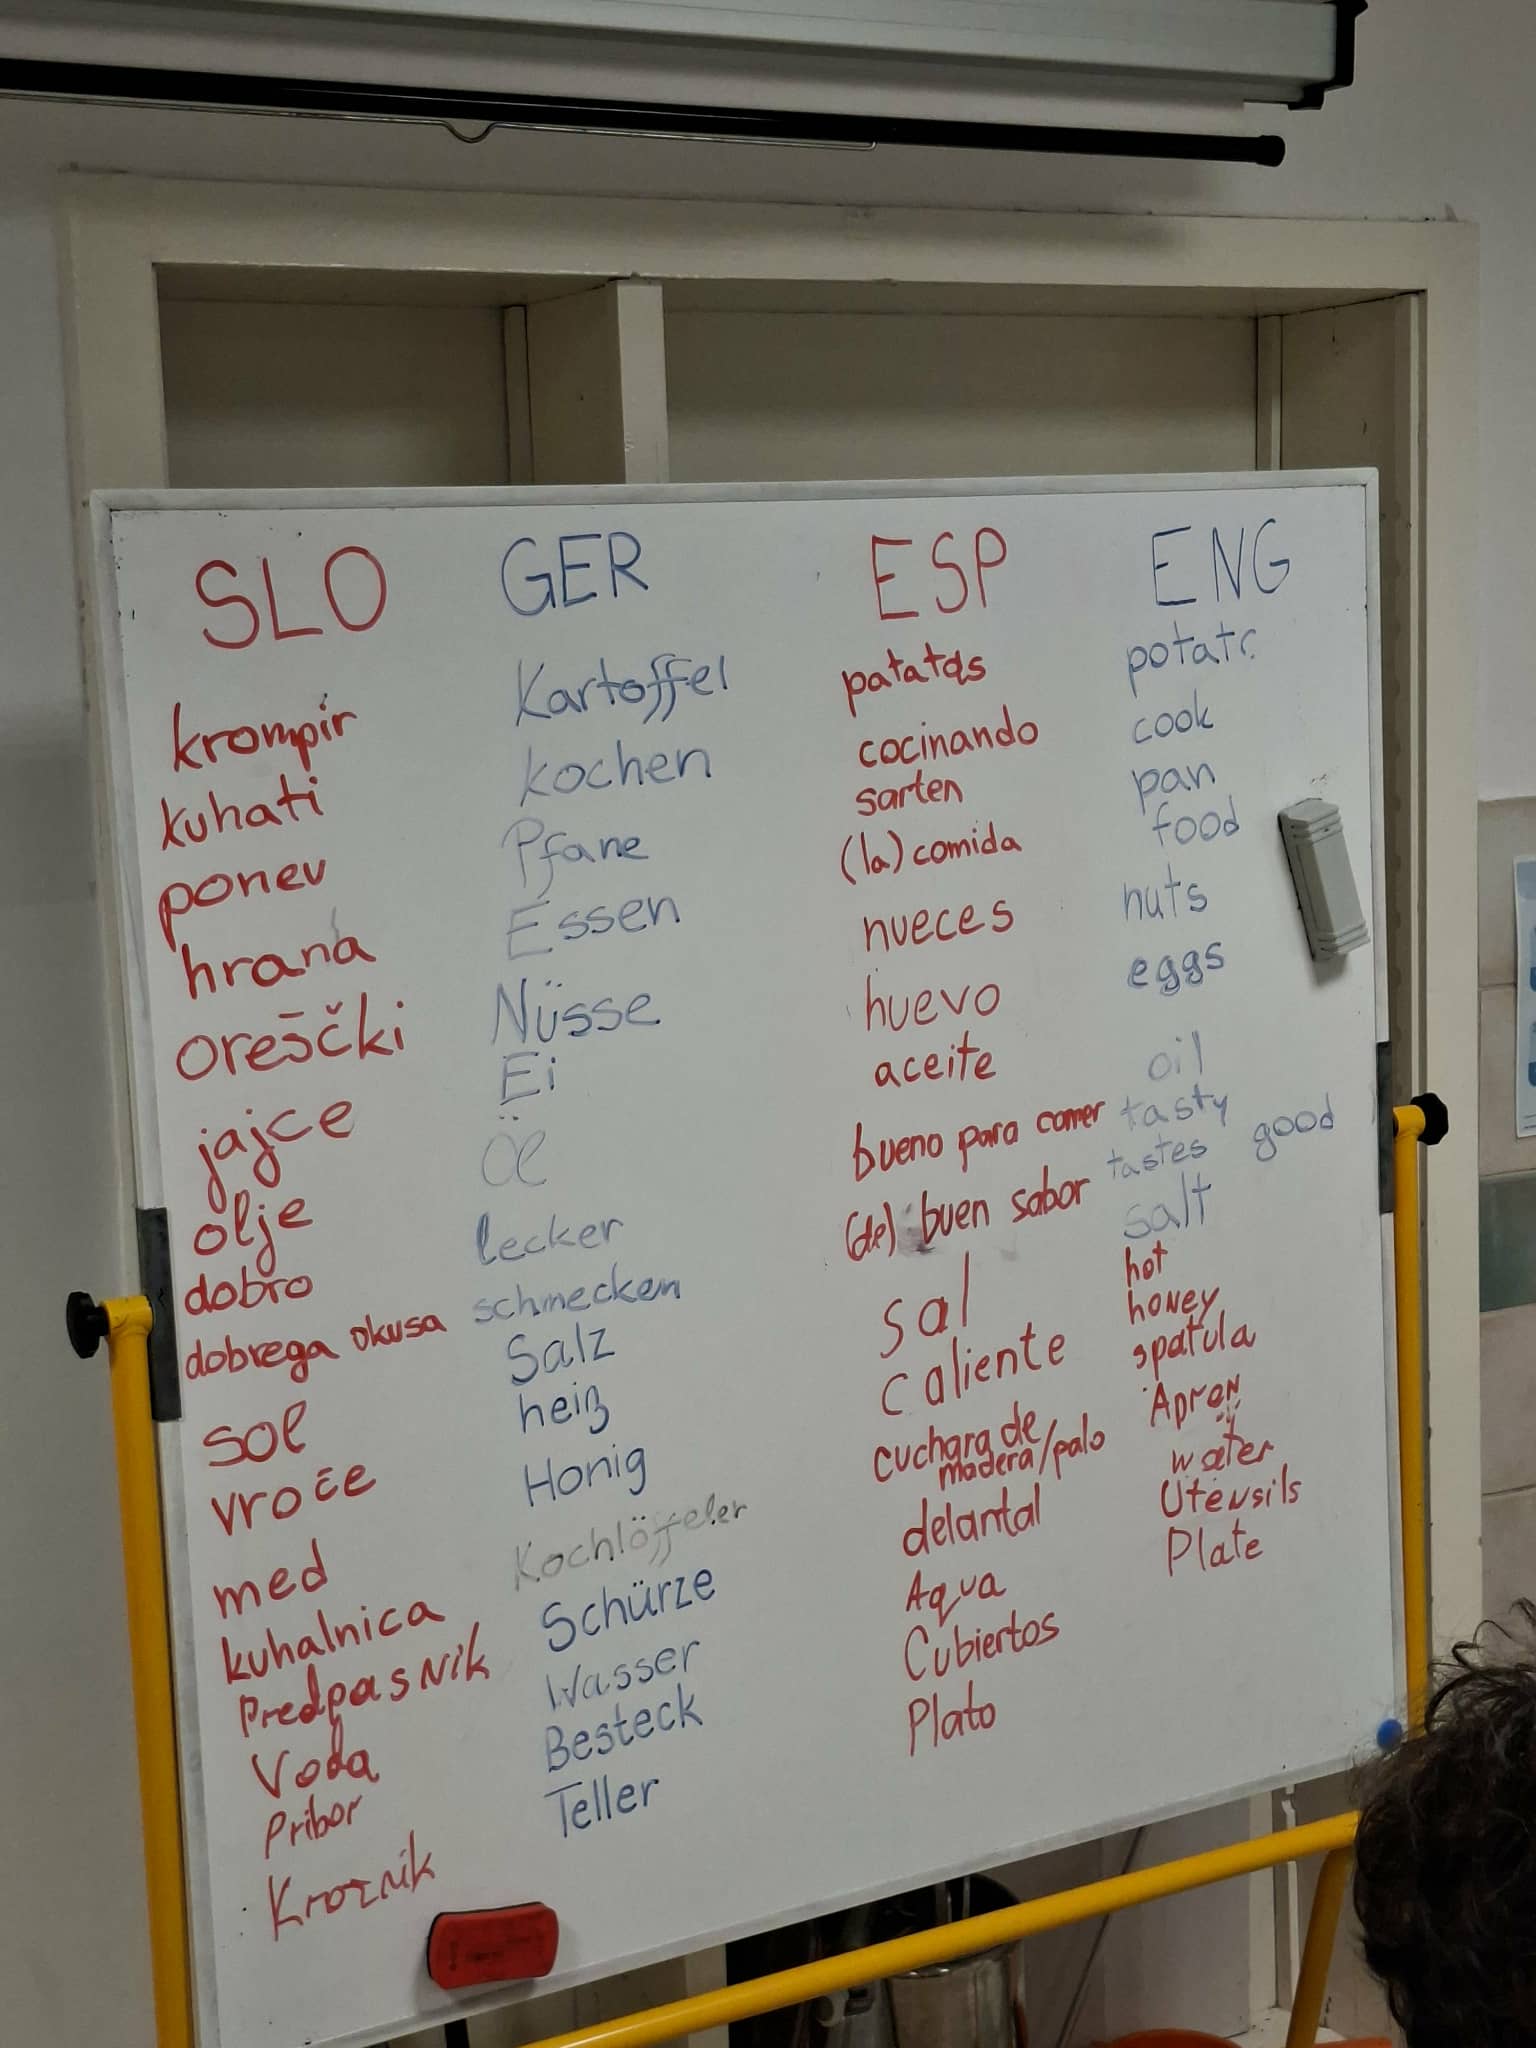 SLO GER ESP ENG
krompir Kartoffel patatas potato
kuhati kochen cocinando cook
ponev Pfane sarten pan
hrana Essen (la) comida food
oreščki Nüsse nueces nuts
jajce Ei huevo eggs
olje Öl aceite oil
dobro lecker bueno para comer tasty
dobrega okusa schmecken (de) buen sabor tastes good
sol Salz sal salt
vroče heiß caliente hot
med Honig honey
kuhalnica Kochlöffeler cuchara de madera/palo spatula
Predpasnik Schürze delantal Apron
Voda Wasser Aqua water
Pribor Besteck Cubiertos Utensils
Kroznik Teller Plato Plate